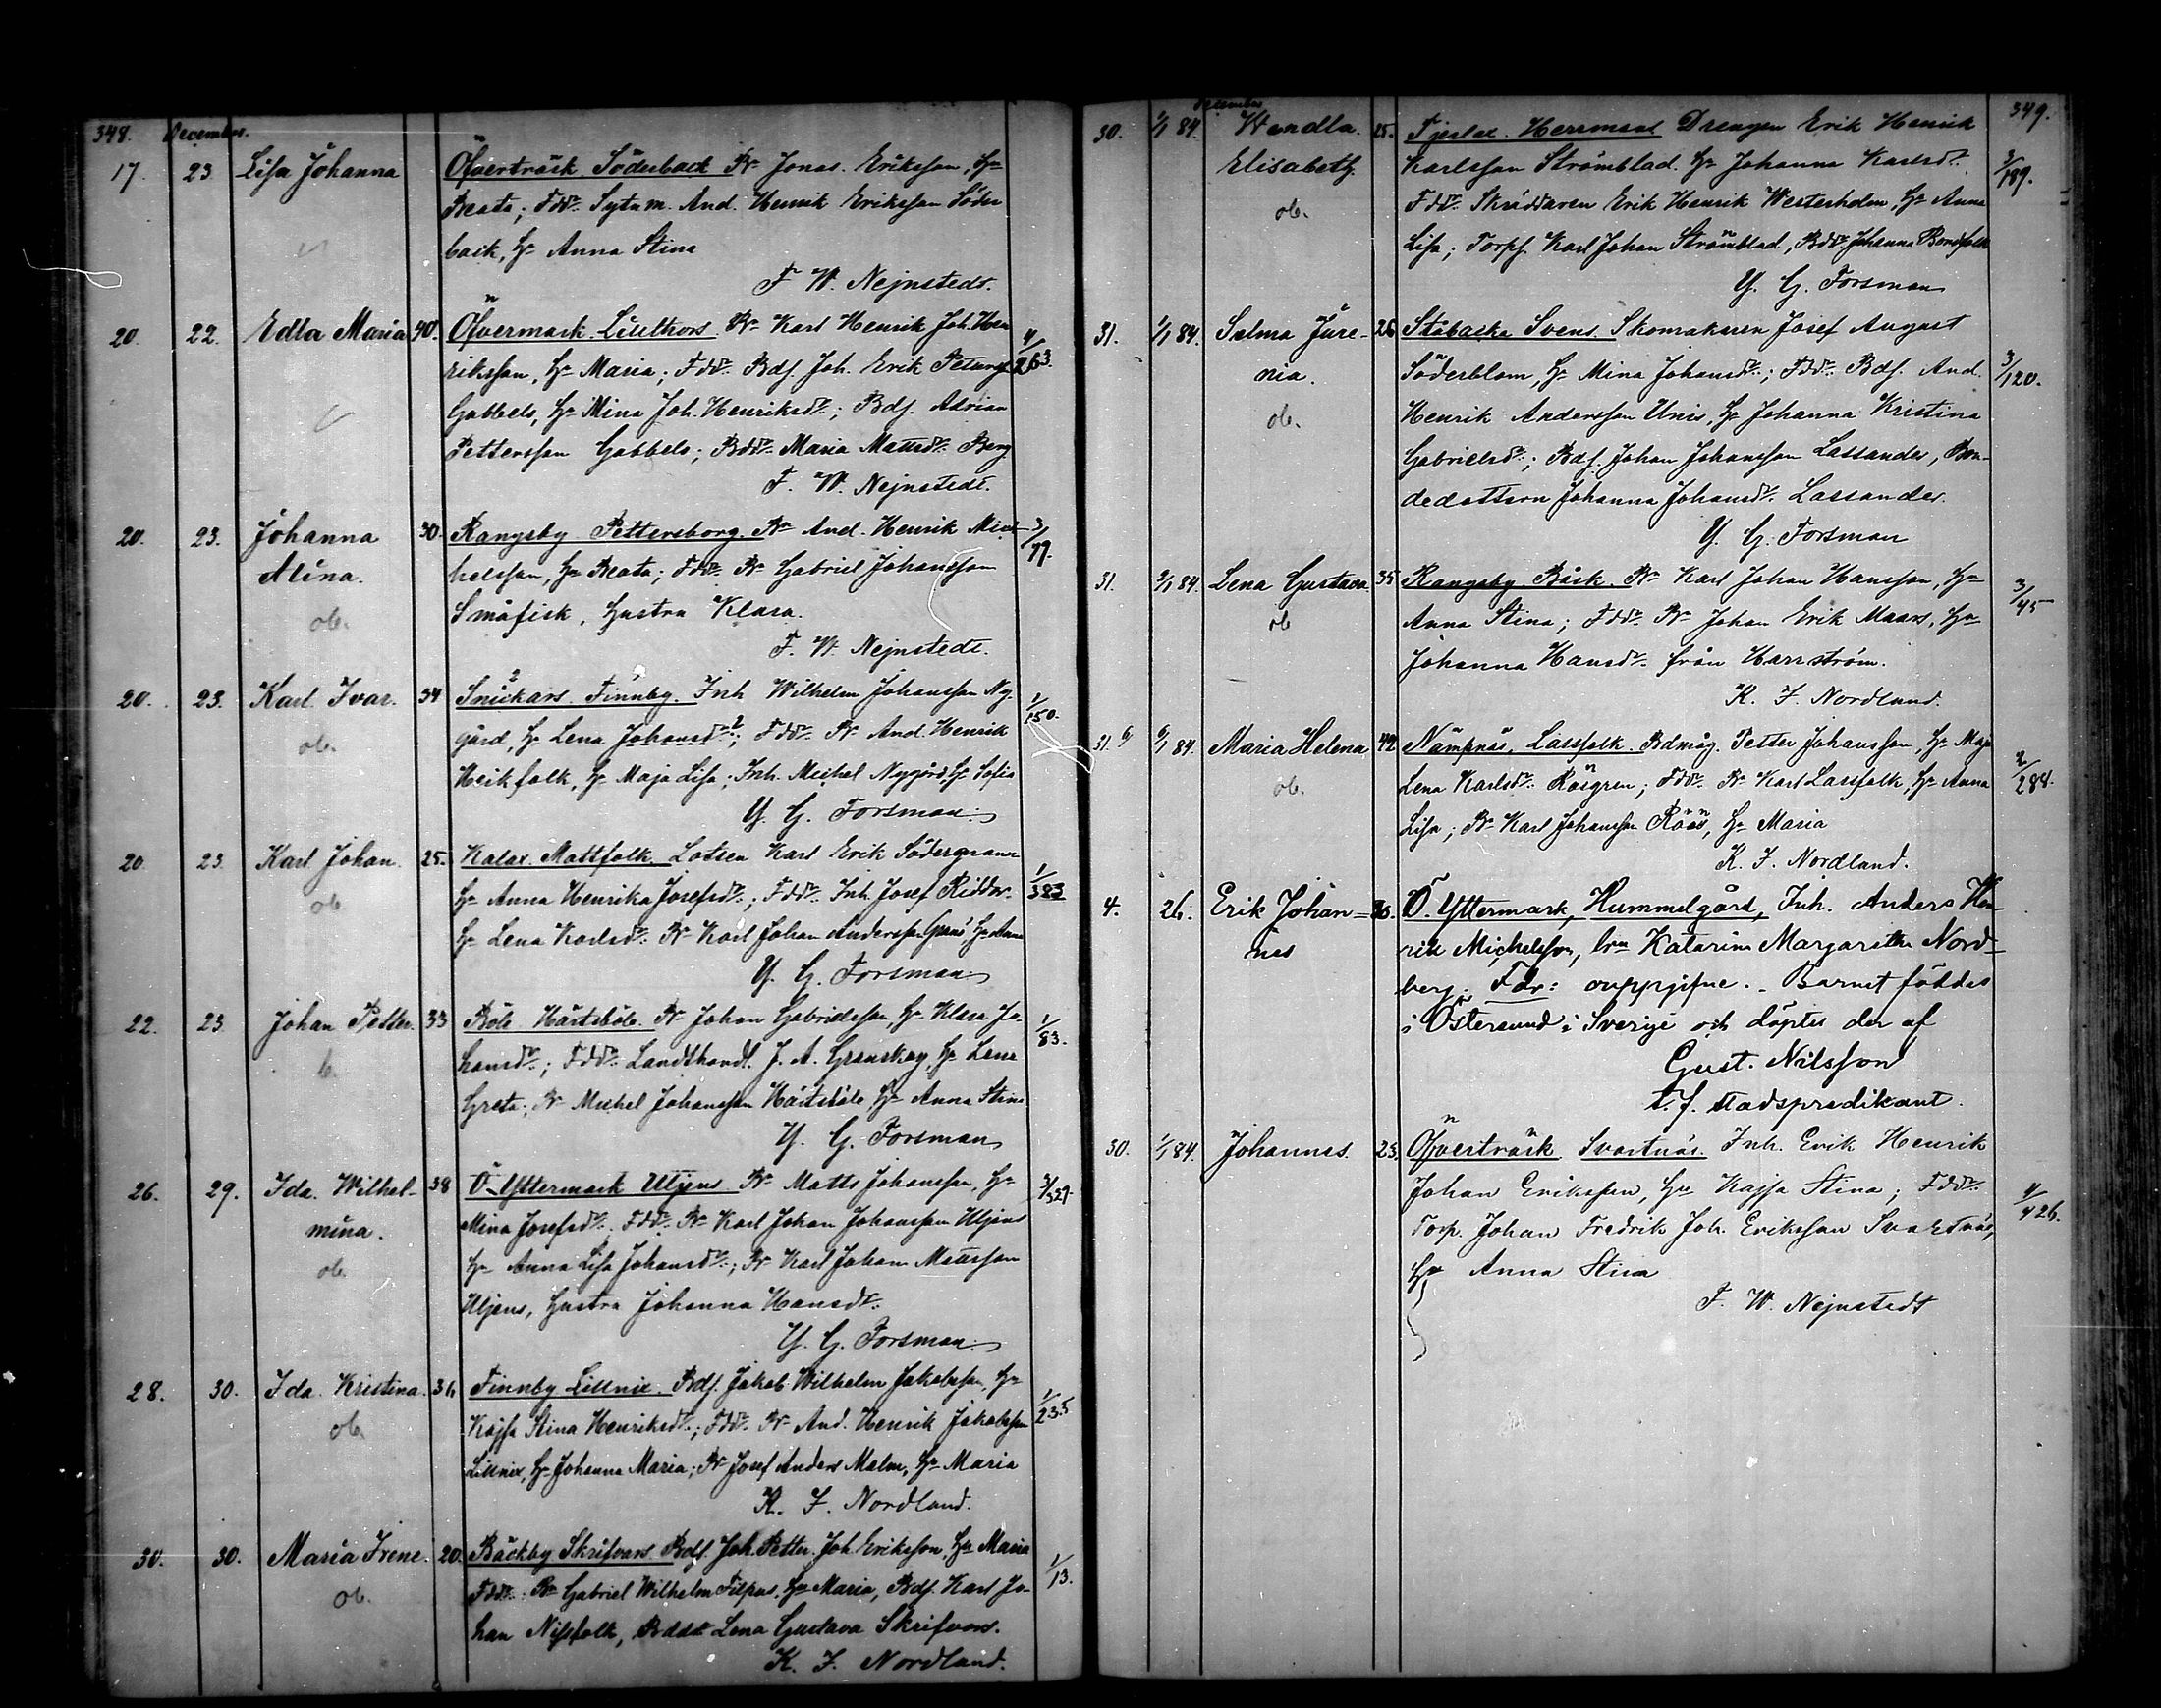 348. December.
17. 23 Lisa Johanna Öfverträsk Söderback Bn Jonas Eriksson, Hu
Beata; Fddr. Sytn.m. And. Henrik Eriksson Söder
back, Hu Anna Stina
F. W. Nejnstedt.
20. 22. Edla Maria 40. Öfvermark Lillthors Bn Karl Henrik Joh. Hen 4/263.
riksson, Hu Maria; Fddr. BdS. Joh. Erik Petersson
Gabbels, Hu Mina Joh. Henriksdr.; Bds. Adrian
Pettersson Gabbels; Bddr. Maria Mattsdr. Berg
F. W. Nejnstedt.
20. 23. Johanna 30. Rangsby Pettersborg. Bn And. Henrik Mic- 3/77.
Alina. helsson, Hu Beata; Fddr. Bn Gabriel Johansson
ob. Småfisk, Hustru Klara.
F. W. Nejnstedt.
20. 23. Karl Ivar. 34 Snickars Finnby. Inh Wilhelm Johansson Ny- 1/150.
ob. gård, Hu Lena Johansdr.; Fddr. Bn And. Henrik
Heikfolk, Hu Maja Lisa; Inh. Michel Nygård, Hu Sofia
Y. G. Forsman
20 23 Karl Johan. 25. Kalax Mattfolk. Lotsen Karl Erik Södergrann 1/383
ob Hu Anna Henrika Josefsdr.; Fddr. Inh. Josef Riddar-
Hu Lena Karlsdr. Bn Karl Johan Andersson Hu Anna
Y. G. Forsman
22. 23. Johan Petter. 33 Böle Härtsböle. Bn Johan Gabrielsson, Hu Klara Jo- 1/83.
hansdr.; Fddr. Landthandl. J. A. Granskog, Hu Lena
Greta; Bn Michel Johansson Härtsböle Hu Anna Stina
Y. G. Forsman
26. 29. Ida Wilhel- 38 Ö. Yttermark Uljens Bn Matts Johansson, Hu 3/329.
mina. Mina Josefsdr. Fddr. Bn Karl Johan Johansson Uljens
ob. Hu Anna Lisa Johansdr.; Bn Karl Johan Mattsson
Uljens, Hustru Johanna Hansdr.
Y. G. Forsman
28. 30. Ida Kristina. 36 Finnby Lillnix. Bds. Jakob Wilhelm Jakobsson, Hu 1/235
ob. Kajsa Stina Henriksdr.; Fddr. Bn And. Henrik Jakobsson
Lillnix, Hu Johanna Maria; Bn Josef Anders Malm, Hu Maria
K. F. Nordlund.
30. 30. Maria Irene. 20. Bäckby Skrifvars Bds. Joh. Petter Joh. Eriksson, Hu Maria 1/13.
ob. Fddr. Bn Gabriel Wilhelm Filpus, Hu Maria, Bds. Karl Jo-
han Nissfolk, Bddr. Lena Gustava Skrifvars.
K. F. Nordlund.
December 349.
30. 1/1 84. Wendla 25. Tjerlax. Herrmans Drengen Erik Henrik
Elisabeth. Karlsson Strömblad. Hu Johanna Karlsdr. 3/189.
ob. Fddr. Skräddaren Erik Henrik Westerholm, Hu Anna
Lisa; Torps. Karl Johan Strömblad, Bddr. Johanna Bondfolk
Y. G. Forsman
31. 1/1 84. Selma Jure- 26 Stobacka Svens. Skomakaren Josef August
nia. Söderblom, Hu Mina Johansdr.; Fddr. Bds. And. 3/120.
ob. Henrik Andersson Unis, Hu Johanna Kristina
Gabrielsdr.; Bds. Johan Johansson Lassander, Bon-
dedottern Johanna Johansdr. Lassander.
Y. G. Forsman
31. 3/1 84. Lena Gustava. 35 Rangsby Bäck. Bn Karl Johan Hansson, Hu 3/45
ob Anna Stina; Fddr. Bn Johan Erik Maars, Hu
Johanna Hansdr. från Harrström.
K. F. Nordlund.
31. 6/1 84. Maria Helena 42 Nämpnäs, Lassfolk. Bdmåg. Petter Johansson, Hu Maja
ob. Lena Karlsdr. Rösgren; Fddr. Bn Karl Lassfolk, Hu Anna 2/288.
Lisa; Bn Karl Johansson Röös, Hu Maria
K. F. Nordlund.
4. 26. Erik Johan- 36. Ö. Yttermark, Hummelgård, Inh. Anders Hen-
nes rik Michelsson, hru Katarina Margareta Nord-
berg. Fdr: ouppgifne. Barnet föddes
i Östersund i Sverige och döptes der af
Gust. Nilsson
t. f. stadspredikant.
30. 1/1 84. Johannes. 23. Öfverträsk Svartnäs. Inh. Erik Henrik
Johan Eriksson, Hu Kajsa Stina; Fddr. 4/426.
Torp. Johan Fredrik Joh. Eriksson Svartnäs,
Hu Anna Stina
F. W. Nejnstedt